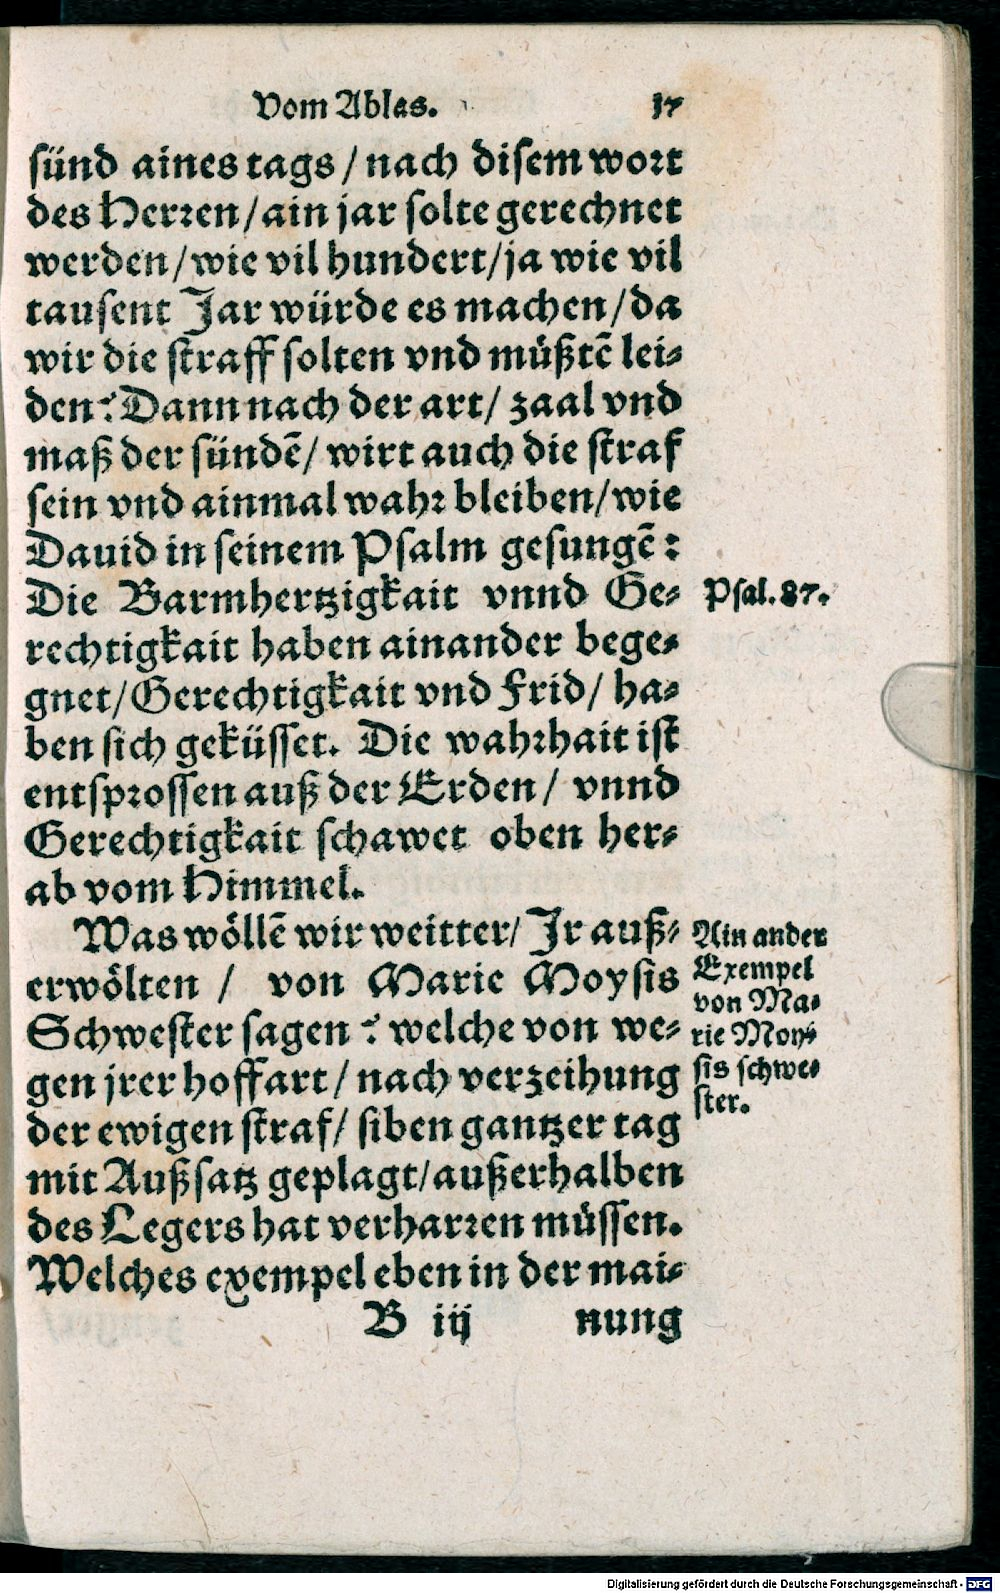 Vom Ablas. 17
sünd aines tags / nach disem wort
des Herren / ain jar solte gerechnet
werden / wie vil hundert / ja wie vil
tausent Jar würde es machen / da
wir die straff solten vnd müßtē lei-
den? Dann nach der art / zaal vnd
maß der sündē / wirt auch die straf
sein vnd ainmal wahr bleiben / wie
Dauid in seinem Psalm gesungē:
Die Barmhertzigkait vnnd Ge-
rechtigkait haben ainander bege-
gnet / Gerechtigkait vnd Frid / ha-
ben sich geküsset. Die wahrhait ist
entsprossen auß der Erden / vnnd
Gerechtigkait schawet oben her-
ab vom Himmel.
Psal. 87.
Was wöllē wir weitter / Jr auß-
erwölten / von Marie Moysis
Schwester sagen? welche von we-
gen jrer hoffart / nach verzeihung
der ewigen straf / siben gantzer tag
mit Außsatz geplagt / außerhalben
des Legers hat verharren müssen.
Welches exempel eben in der mai-
Ain ander
Exempel
von Ma-
rie Moy-
sis schwe-
ster.
B iij nung
Digitalisierung gefördert durch die Deutsche Forschungsgemeinschaft - DFG